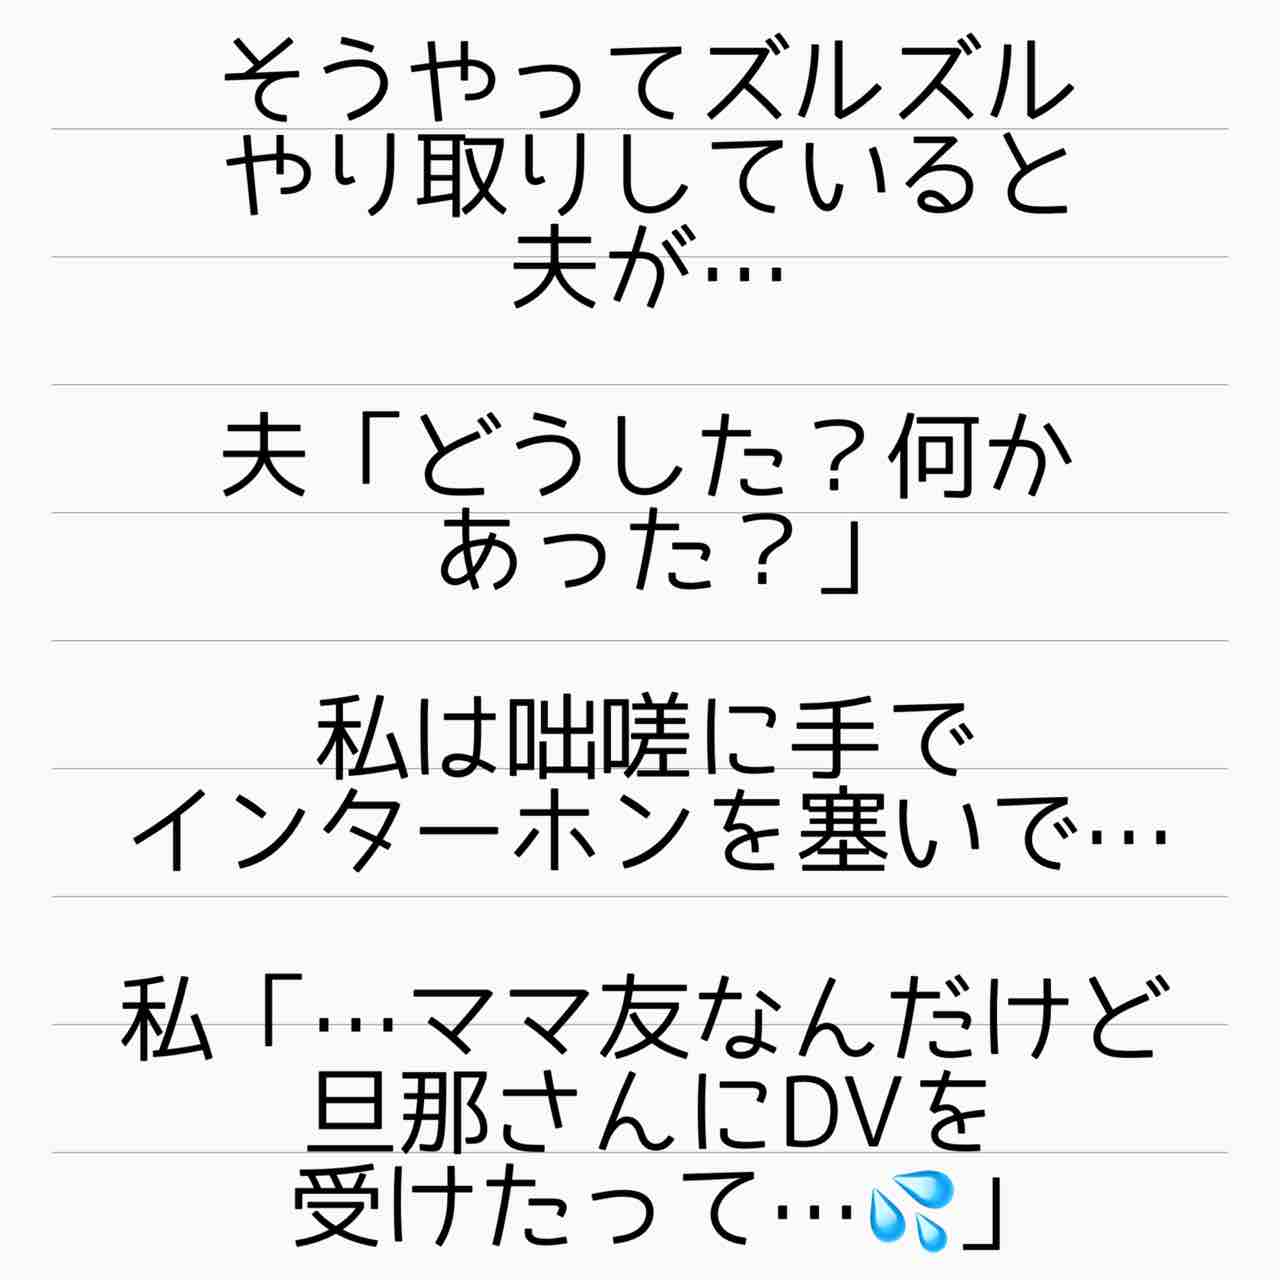 そうやってズルズル
やり取りしていると
夫が…
夫「どうした？何か
あった？」
私は咄嗟に手で
インターホンを塞いで…
私「…ママ友なんだけど
旦那さんにDVを
受けたって…💦」